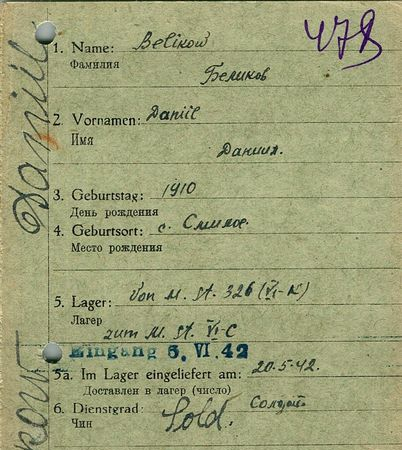 478
1. Name: Belikow
Фамилия
Беликов
2. Vornamen: Daniil
Имя
Даниил.
3. Geburtstag: 1910
День рождения
4. Geburtsort: с. Смилое.
Место рождения
5. Lager: von M. St. 326 (VI-K)
Лагер
zum M. St. VI-C
Eingang 6. VI. 42
5a. Im Lager eingeliefert am: 20.5.42.
Доставлен в лагер (число)
6. Dienstgrad: Sold. Солдат
Чин
Daniil